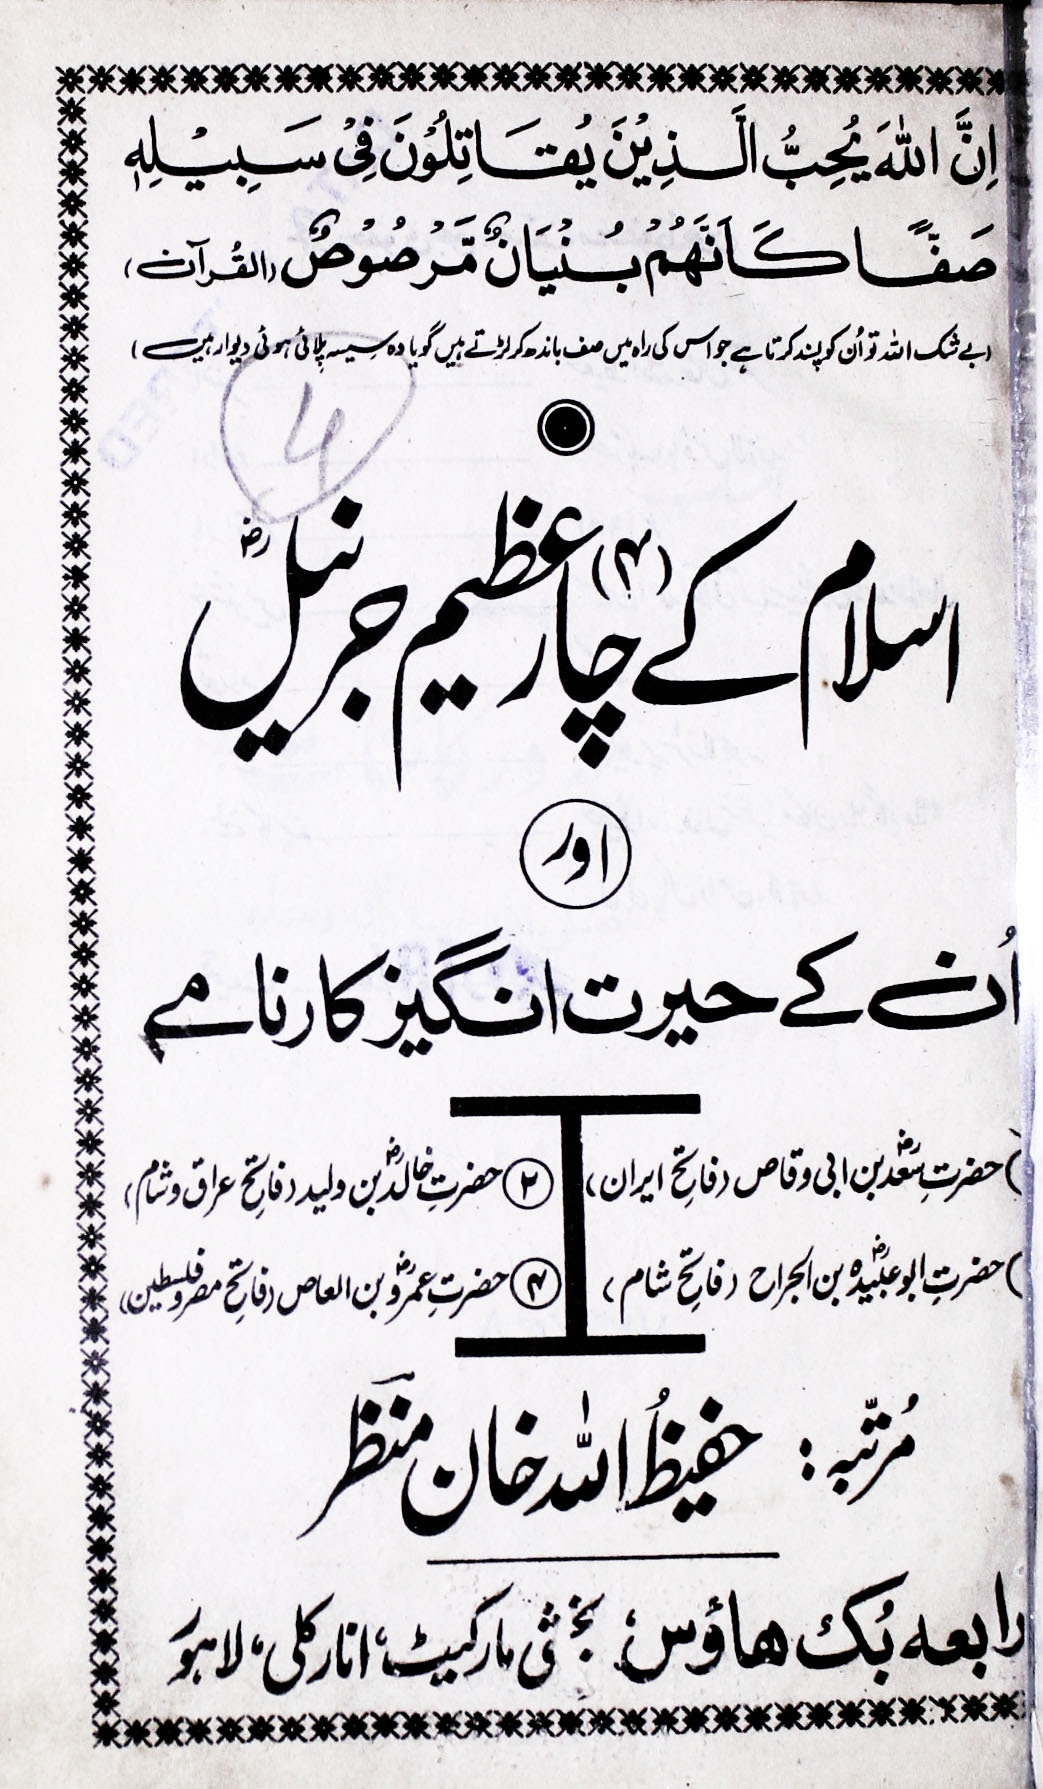 اِنَّ اللّٰهَ يُحِبُّ الَّذِيْنَ يُقَاتِلُوْنَ فِيْ سَبِيْلِهٖ
صَفًّا كَاَنَّهُمْ بُنْيَانٌ مَّرْصُوْصٌ (القُرآن)
(بے شک اللہ تو اُن کو پسند کرتا ہے جو اس کی راہ میں صف باندھ کر لڑتے ہیں گویا وہ سیسہ پلائی ہوئی دیوار ہیں)
۴
اسلام کے چار (۴) عظیم جرنیلؓ
اور
اُن کے حیرت انگیز کارنامے
) حضرتِ سعدؓ بن ابی وقاص (فاتحِ ایران) ۲ حضرتِ خالدؓ بن ولید (فاتحِ عراق و شام)
) حضرتِ ابو عبیدہؓ بن الجراح (فاتحِ شام) ۴ حضرتِ عمروؓ بن العاص (فاتحِ مصر و فلسطین)
مُرتّبہ : حفیظُ اللہ خان منظَر
رابعہ بُک ھاؤس، بخشی مارکیٹ، انارکلی، لاہور